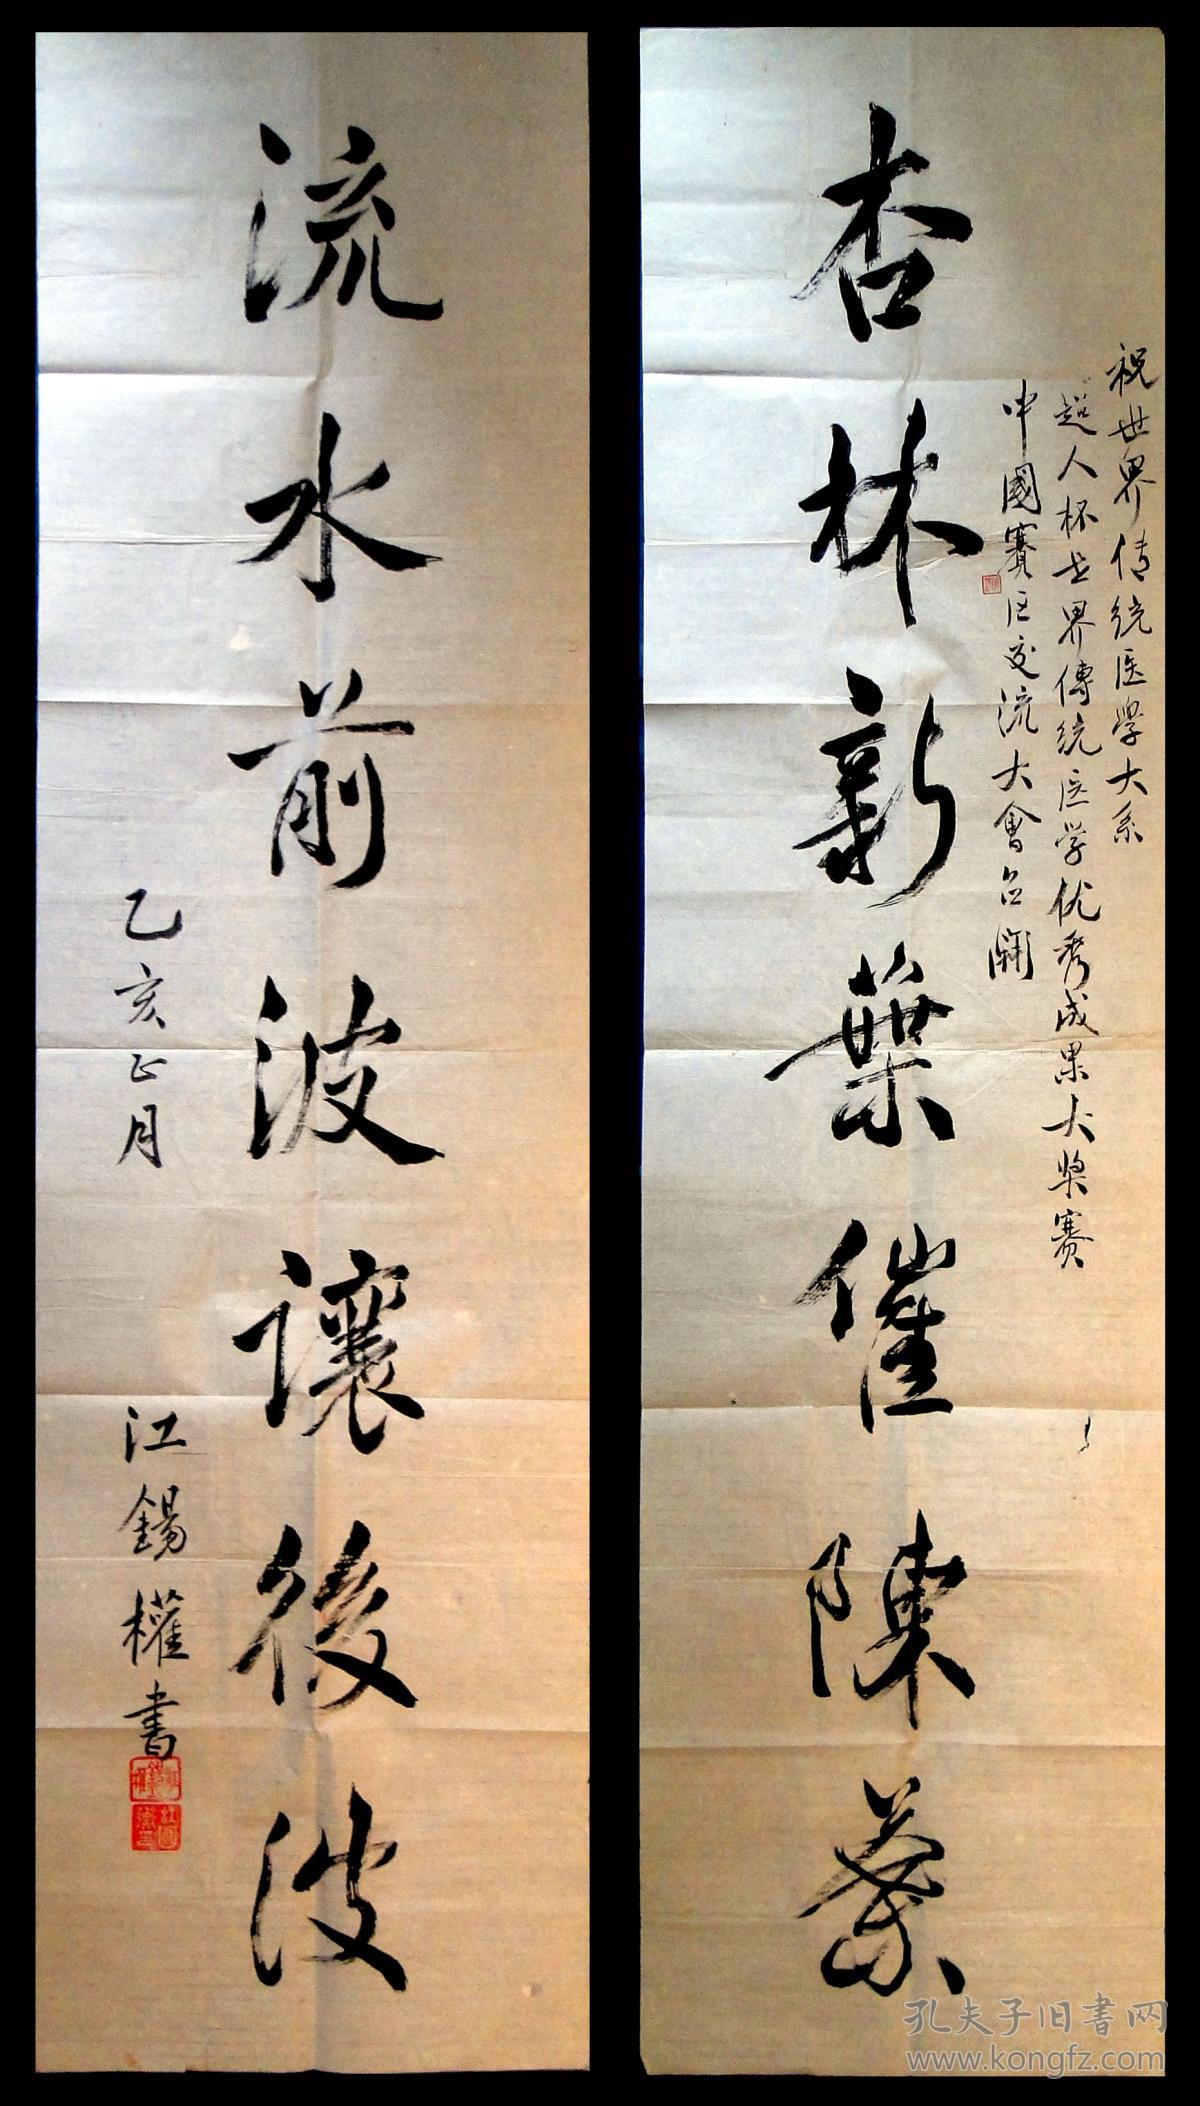 杏林新葉催陳葉
祝世界传统医学大系
超人杯世界傳统医学优秀成果大奖赛
中國赛区交流大會召開
流水前波讓後波
乙亥正月
江錫權書
孔夫子旧书网
www.kongfz.com